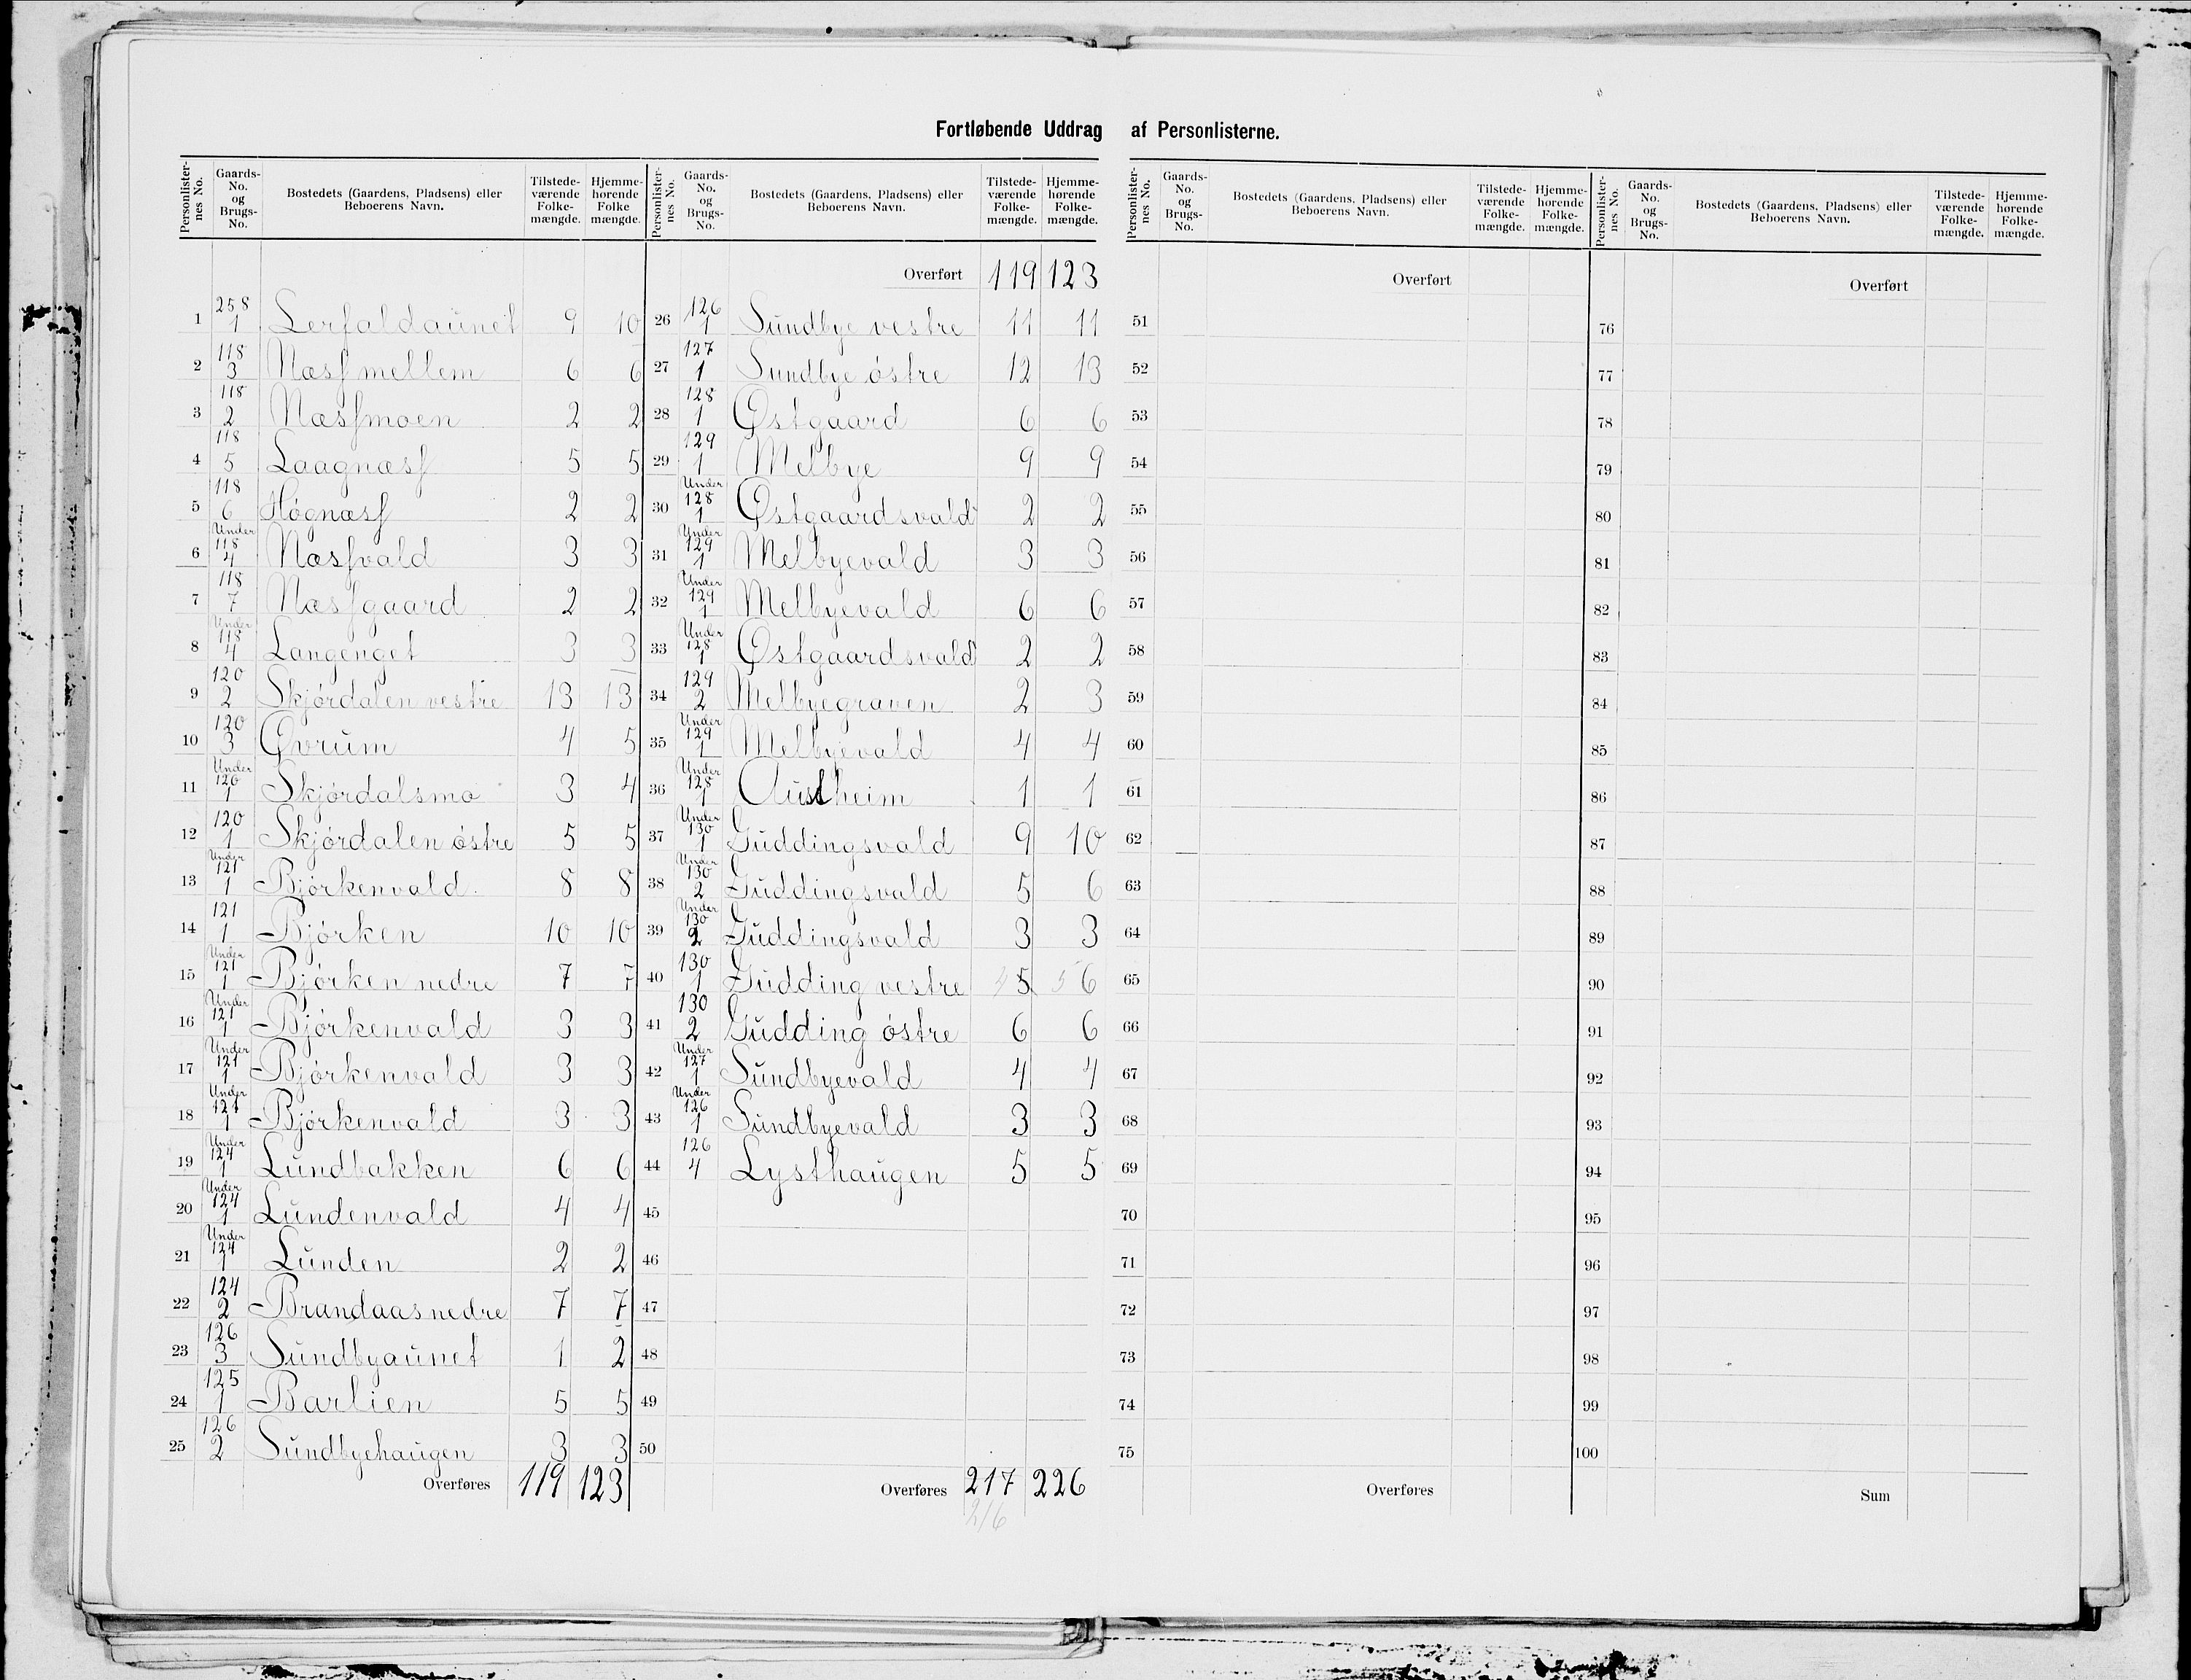 Fortløbende Uddrag af Personlisterne.
Personlisternes No. | Gaards-No. og Brugs-No. | Bostedets (Gaardens, Pladsens) eller Beboerens Navn. | Tilstedeværende Folkemængde. | Hjemmehørende Folkemængde.
1 258/1 Lerfaldaunet 9 10
2 118/3 Næsſ mellem 6 6
3 118/2 Næsſmoen 2 2
4 118/5 Laagnæsſ 5 5
5 118/6 Høgnæsſ 2 2
6 Under 118/4 Næsſvald 3 3
7 118/7 Næsſgaard 2 2
8 Under 118/4 Langenget 3 3
9 120/2 Skjørdalen vestre 13 13
10 120/3 Øvrum 4 5
11 Under 120/1 Skjørdalsmo 3 4
12 120/1 Skjørdalen østre 5 5
13 Under 121/1 Bjørkenvald 8 8
14 121/1 Bjørken 10 10
15 Under 121/1 Bjørken nedre 7 7
16 Under 121/1 Bjørkenvald 3 3
17 Under 121/1 Bjørkenvald 3 3
18 Under 121/1 Bjørkenvald 3 3
19 Under 124/1 Lundbakken 6 6
20 Under 124/1 Lundenvald 4 4
21 Under 124/1 Lunden 2 2
22 124/2 Brandaas nedre 7 7
23 126/3 Sundbyaunet 1 2
24 125/1 Barlien 5 5
25 126/2 Sundbyehaugen 3 3
Overføres 119 123
Personlisternes No. | Gaards-No. og Brugs-No. | Bostedets (Gaardens, Pladsens) eller Beboerens Navn. | Tilstedeværende Folkemængde. | Hjemmehørende Folkemængde.
Overført 119 123
26 126/1 Sundbye vestre 11 11
27 127/1 Sundbye østre 12 13
28 128/1 Østgaard 6 6
29 129/1 Melbye 9 9
30 Under 128/1 Østgaardsvald 2 2
31 Under 129/1 Melbyevald 3 3
32 Under 129/1 Melbyevald 6 6
33 Under 128/1 Østgaardsvald 2 2
34 129/2 Melbyegraven 2 3
35 Under 129/1 Melbyevald 4 4
36 Under 128/1 Austheim 1 1
37 Under 130/1 Guddingsvald 9 10
38 Under 130/2 Guddingsvald 5 6
39 Under 130/2 Guddingsvald 3 3
40 130/1 Gudding vestre 5 5 6
41 130/2 Gudding østre 6 6
42 Under 127/1 Sundbyevald 4 4
43 Under 126/1 Sundbyevald 3 3
44 126/4 Lysthaugen 5 5
45
46
47
48
49
50
Overføres 217 226
216
Personlisternes No. | Gaards-No. og Brugs-No. | Bostedets (Gaardens, Pladsens) eller Beboerens Navn. | Tilstedeværende Folkemængde. | Hjemmehørende Folkemængde.
Overført
51
52
53
54
55
56
57
58
59
60
61
62
63
64
65
66
67
68
69
70
71
72
73
74
75
Overføres
Personlisternes No. | Gaards-No. og Brugs-No. | Bostedets (Gaardens, Pladsens) eller Beboerens Navn. | Tilstedeværende Folkemængde. | Hjemmehørende Folkemængde.
Overført
76
77
78
79
80
81
82
83
84
85
86
87
88
89
90
91
92
93
94
95
96
97
98
99
100
Sum